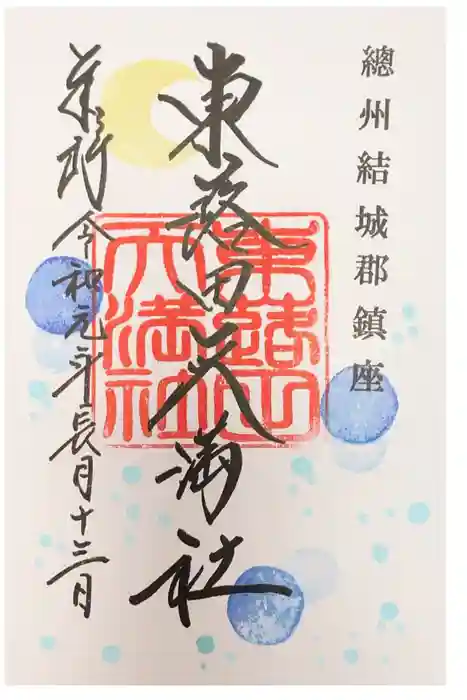 總州結城郡鎮座
東蕗田天満社
東蕗田
天満社
令和元年長月十三日